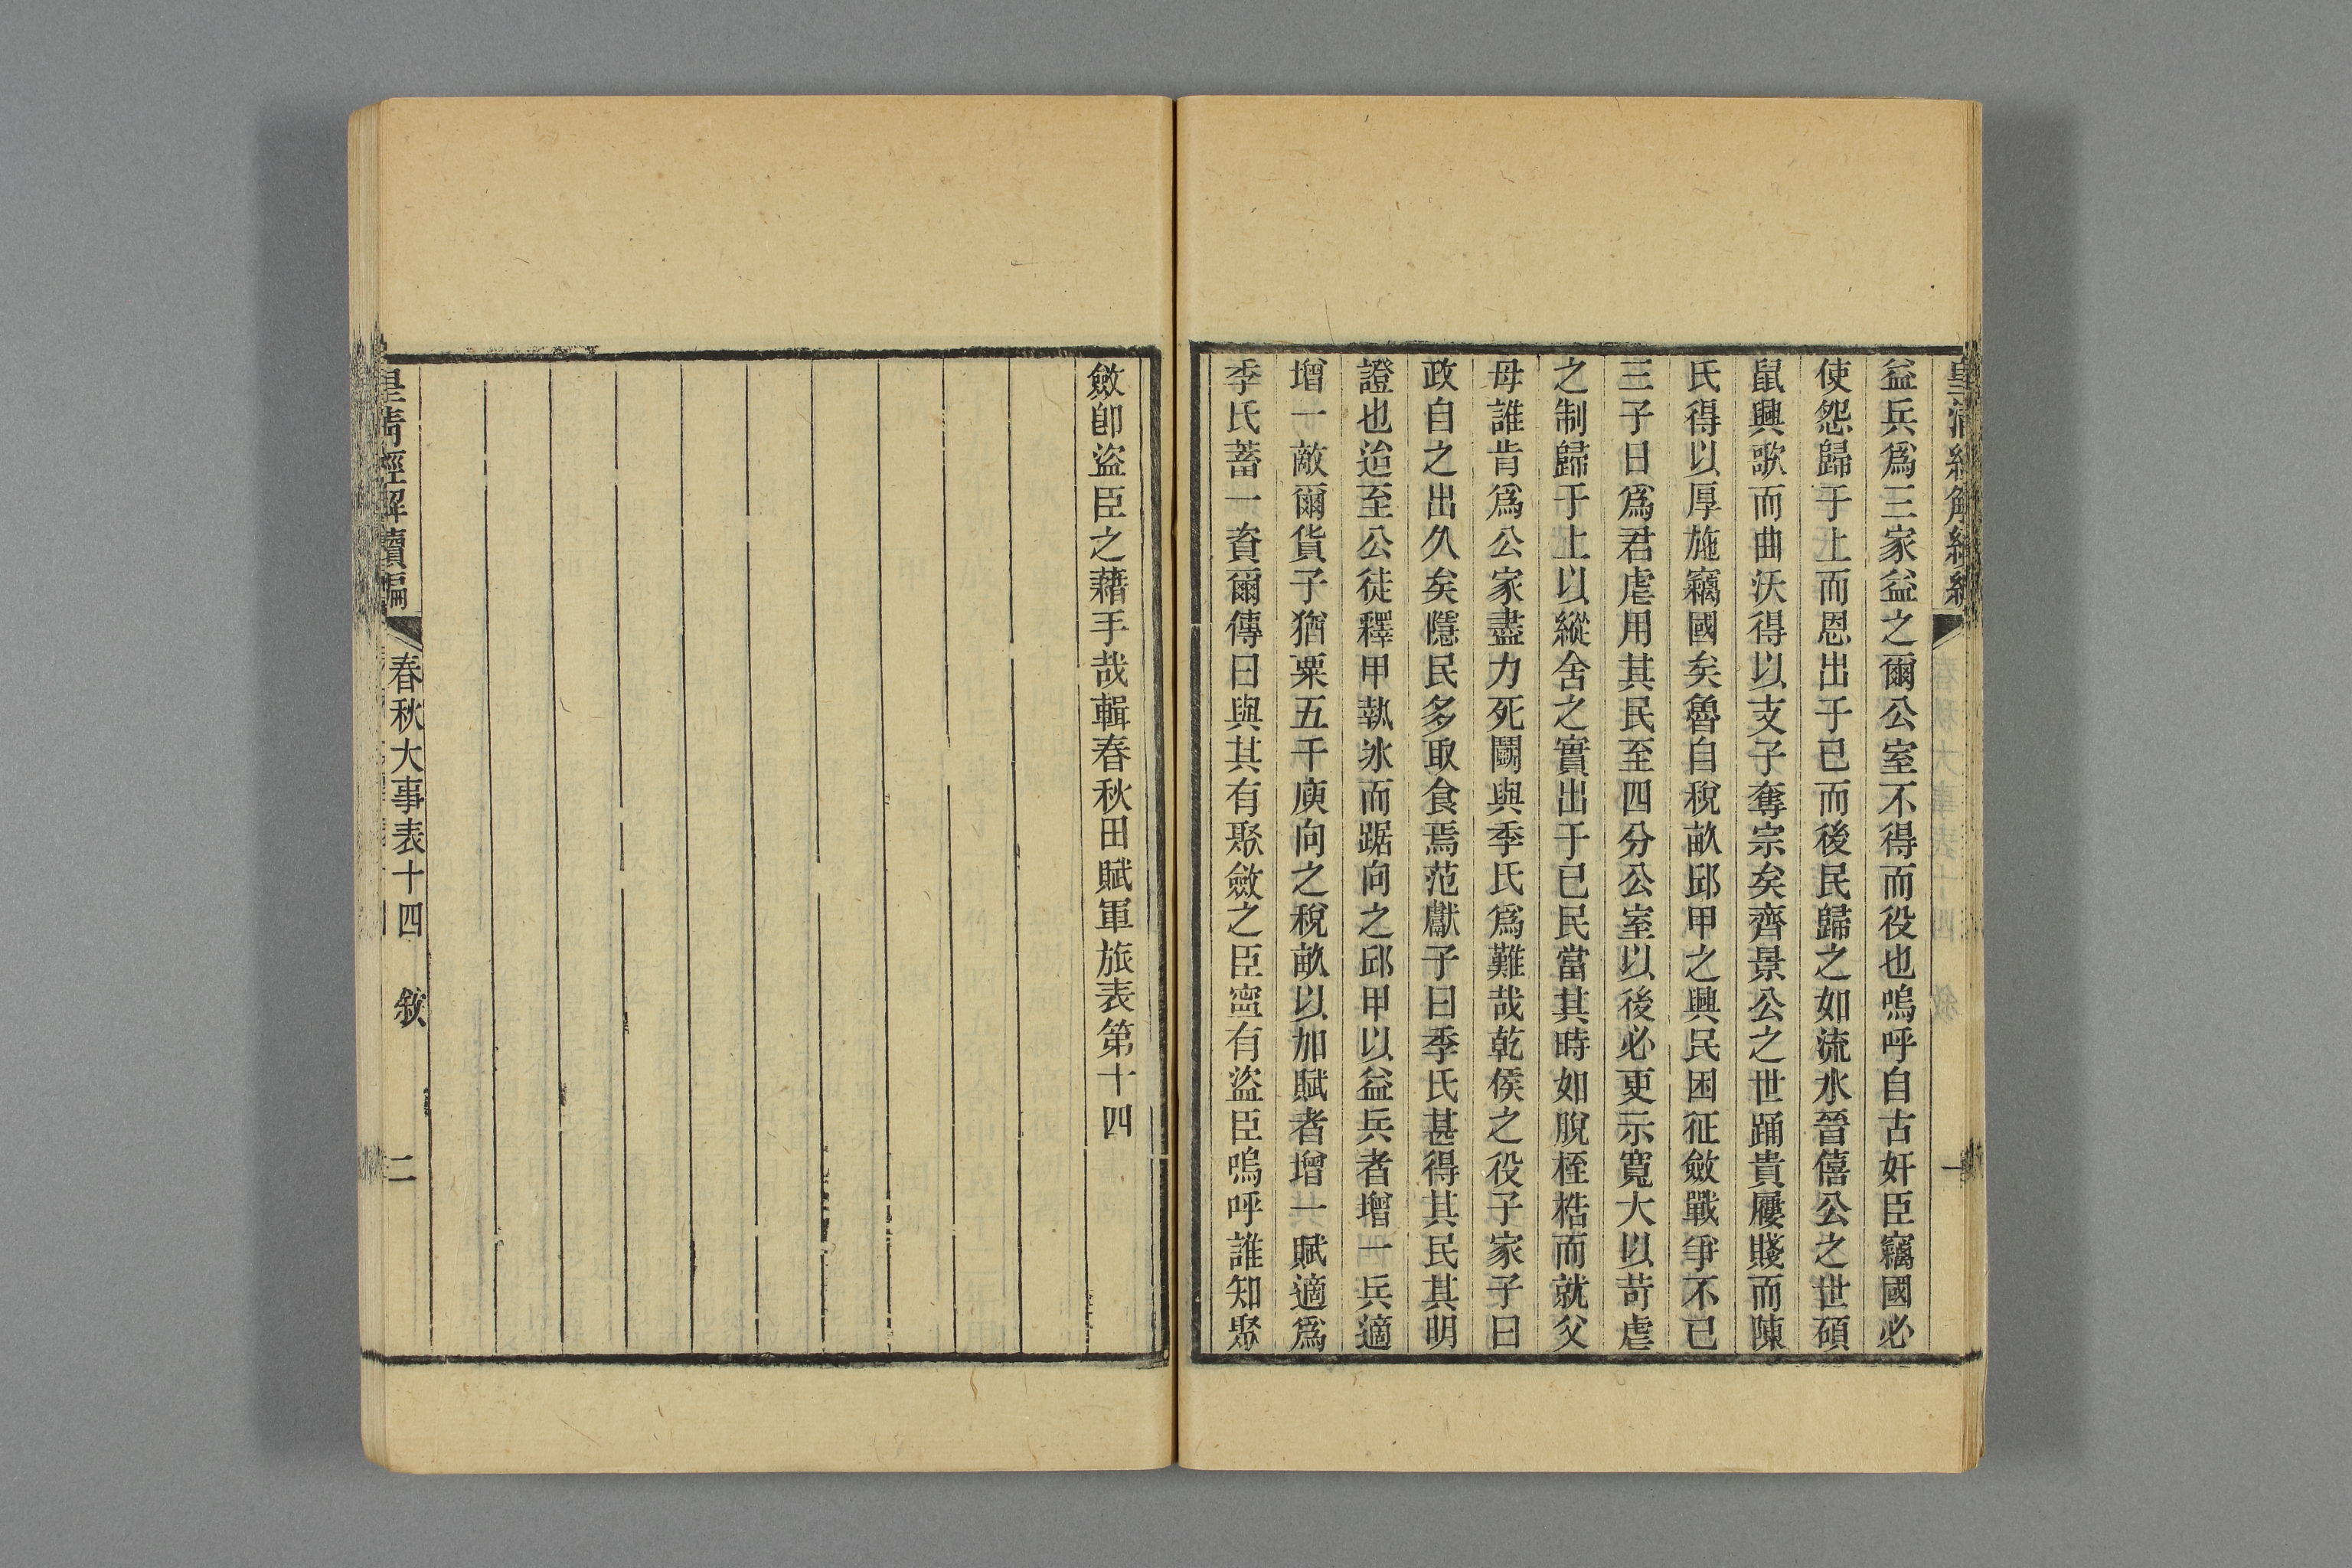 益兵爲三家益之爾公室不得而役也嗚呼自古奸臣竊國必
使怨歸于上而恩出于已而後民歸之如流水晉僖公之世碩
鼠興歌而曲沃得以支子奪宗矣齊景公之世踊貴屨賤而陳
氏得以厚施竊國矣魯自稅畝邱甲之興民困征斂戰爭不已
三子曰爲君虐用其民至四分公室以後必更示寬大以苛虐
之制歸于上以縱舍之實出于已民當其時如脫桎梏而就父
母誰肯爲公家盡力死鬭與季氏爲難哉乾侯之役子家子曰
政自之出久矣隱民多取食焉范獻子曰季氏甚得其民其明
證也迨至公徒釋甲執冰而踞向之邱甲以益兵者增一兵適
增一敵爾貨子猶粟五千庾向之稅畝以加賦者增一賦適爲
季氏蓄一資爾傳曰與其有聚斂之臣寧有盜臣嗚呼誰知聚
斂卽盜臣之藉手哉輯春秋田賦軍旅表第十四
皇清經解續編 春秋大事表十四 敘 二